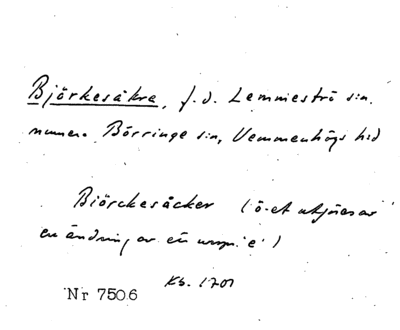 Björkesåkra, f.d. Lemmeströ s:n.
numera Börringe s:n, Vemmenhögs hd
Biörckesåcker (ö-et utgöres av
en ändring av ett urspr. e)
Kb. 1701
Nr 7506